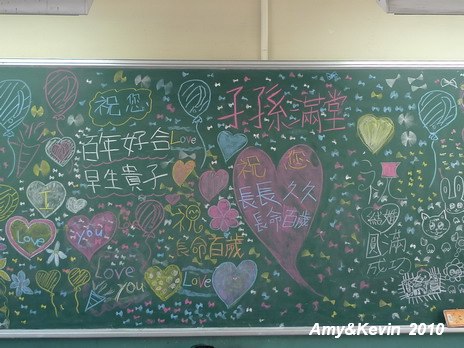 祝您
百年好合
早生貴子
Love
子孫滿堂
祝您
長長久久
長命百歲
祝
長命百歲
I
Love
you
Love
you
Love
Amy&Kevin 2010